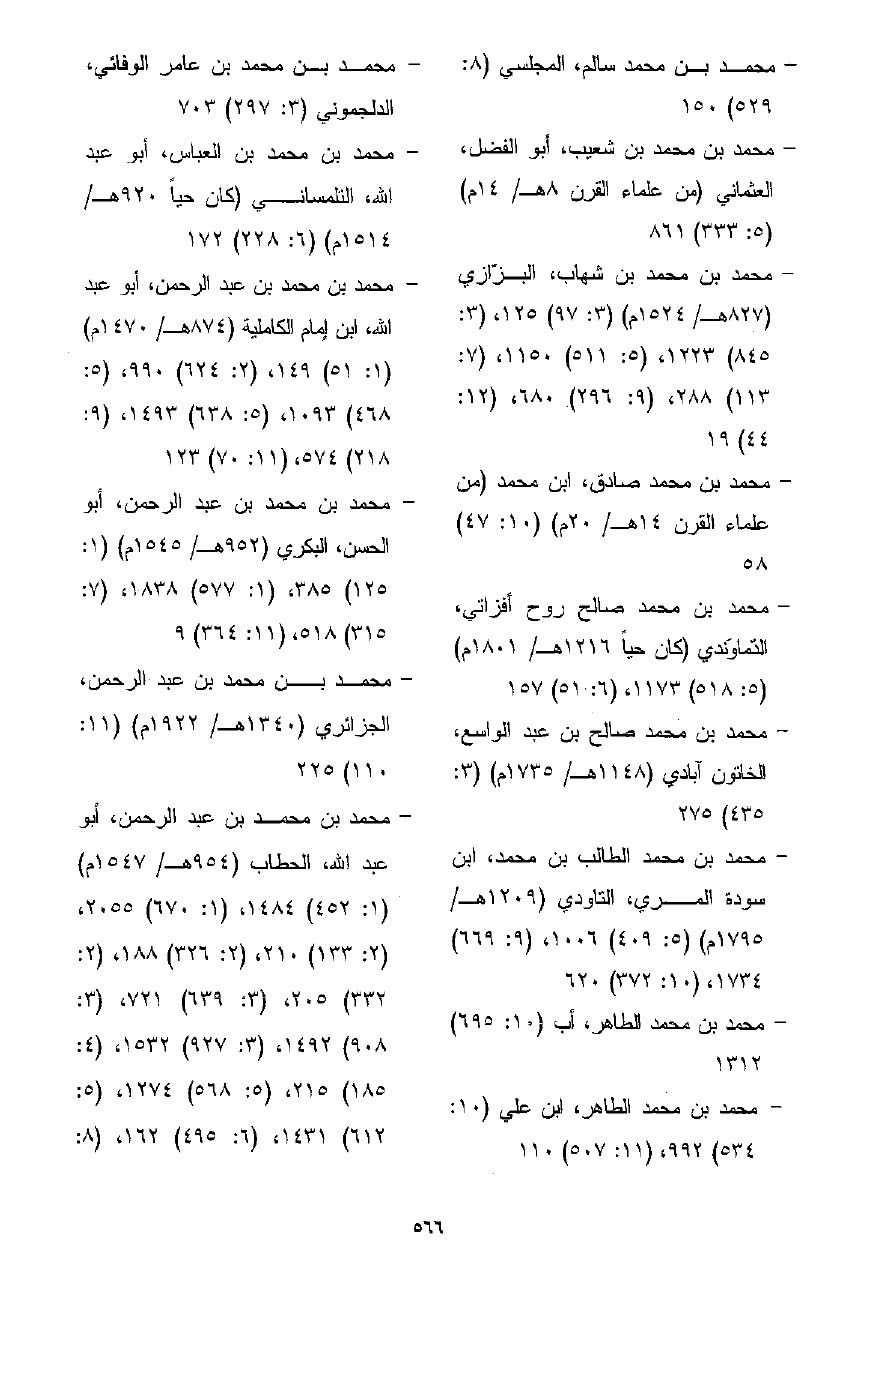 - محمد بن محمد سالم، المجلسي (٨:
٥٢٩) ١٥٠
- محمد بن محمد بن شعيب، أبو الفضل،
العثماني (من علماء القرن ٨هـ/ ١٤م)
(٥: ٣٣٣) ٨٦١
- محمد بن محمد بن شهاب، البزّازي
(٨٢٧هـ/ ١٥٢٤م) (٣: ٩٧) ١٢٥، (٣:
٨٤٥) ١٢٢٣، (٥: ٥١١) ١١٥٠، (٧:
١١٣) ٢٨٨، (٩: ٢٩٦) ٦٨٠، (١٢:
٤٤) ١٩
- محمد بن محمد صادق، ابن محمد (من
علماء القرن ١٤هـ/ ٢٠م) (١٠: ٤٧)
٥٨
- محمد بن محمد صالح روح أفزاتي،
التماوندي (كان حياً ١٢١٦هـ/ ١٨٠١م)
(٥: ٥١٨) ١١٧٣، (٦: ٥١) ١٥٧
- محمد بن محمد صالح بن عبد الواسع،
الخاتون آبادي (١١٤٨هـ/ ١٧٣٥م) (٣:
٤٣٥) ٢٧٥
- محمد بن محمد الطالب بن محمد، ابن
سودة المري، التاودي (١٢٠٩هـ/
١٧٩٥م) (٥: ٤٠٩) ١٠٠٦، (٩: ٦٦٩)
١٧٣٤، (١٠: ٣٧٢) ٦٢٠
- محمد بن محمد الطاهر، أب (١٠: ٦٩٥)
١٣١٢
- محمد بن محمد الطاهر، ابن علي (١٠:
٥٣٤) ٩٩٢، (١١: ٥٠٧) ١١٠
- محمد بن محمد بن عامر الوفائي،
الدلجموني (٣: ٢٩٧) ٧٠٣
- محمد بن محمد بن العباس، أبو عبد
الله، التلمساني (كان حياً ٩٢٠هـ/
١٥١٤م) (٦: ٢٢٨) ١٧٢
- محمد بن محمد بن عبد الرحمن، أبو عبد
الله، ابن إمام الكاملية (٨٧٤هـ/ ١٤٧٠م)
(١: ٥١) ١٤٩، (٢: ٦٢٤) ٩٩٠، (٥:
٤٦٨) ١٠٩٣، (٥: ٦٣٨) ١٤٩٣، (٩:
٢١٨) ٥٧٤، (١١: ٧٠) ١٢٣
- محمد بن محمد بن عبد الرحمن، أبو
الحسن، البكري (٩٥٢هـ/ ١٥٤٥م) (١:
١٢٥) ٣٨٥، (١: ٥٧٧) ١٨٣٨، (٧:
٣١٥) ٥١٨، (١١: ٣٦٤) ٩
- محمد بن محمد بن عبد الرحمن،
الجزائري (١٣٤٠هـ/ ١٩٢٢م) (١١:
١١٠) ٢٢٥
- محمد بن محمد بن عبد الرحمن، أبو
عبد الله، الحطاب (٩٥٤هـ/ ١٥٤٧م)
(١: ٤٥٢) ١٤٨٤، (١: ٦٧٠) ٢٠٥٥،
(٢: ١٣٣) ٢١٠، (٢: ٣٢٦) ١٨٨، (٢:
٣٣٢) ٢٠٥، (٣: ٦٣٩) ٧٢١، (٣:
٩٠٨) ١٤٩٢، (٣: ٩٢٧) ١٥٣٢، (٤:
١٨٥) ٢١٥، (٥: ٥٦٨) ١٢٧٤، (٥:
٦١٢) ١٤٣١، (٦: ٤٩٥) ١٦٢، (٨:
٥٦٦